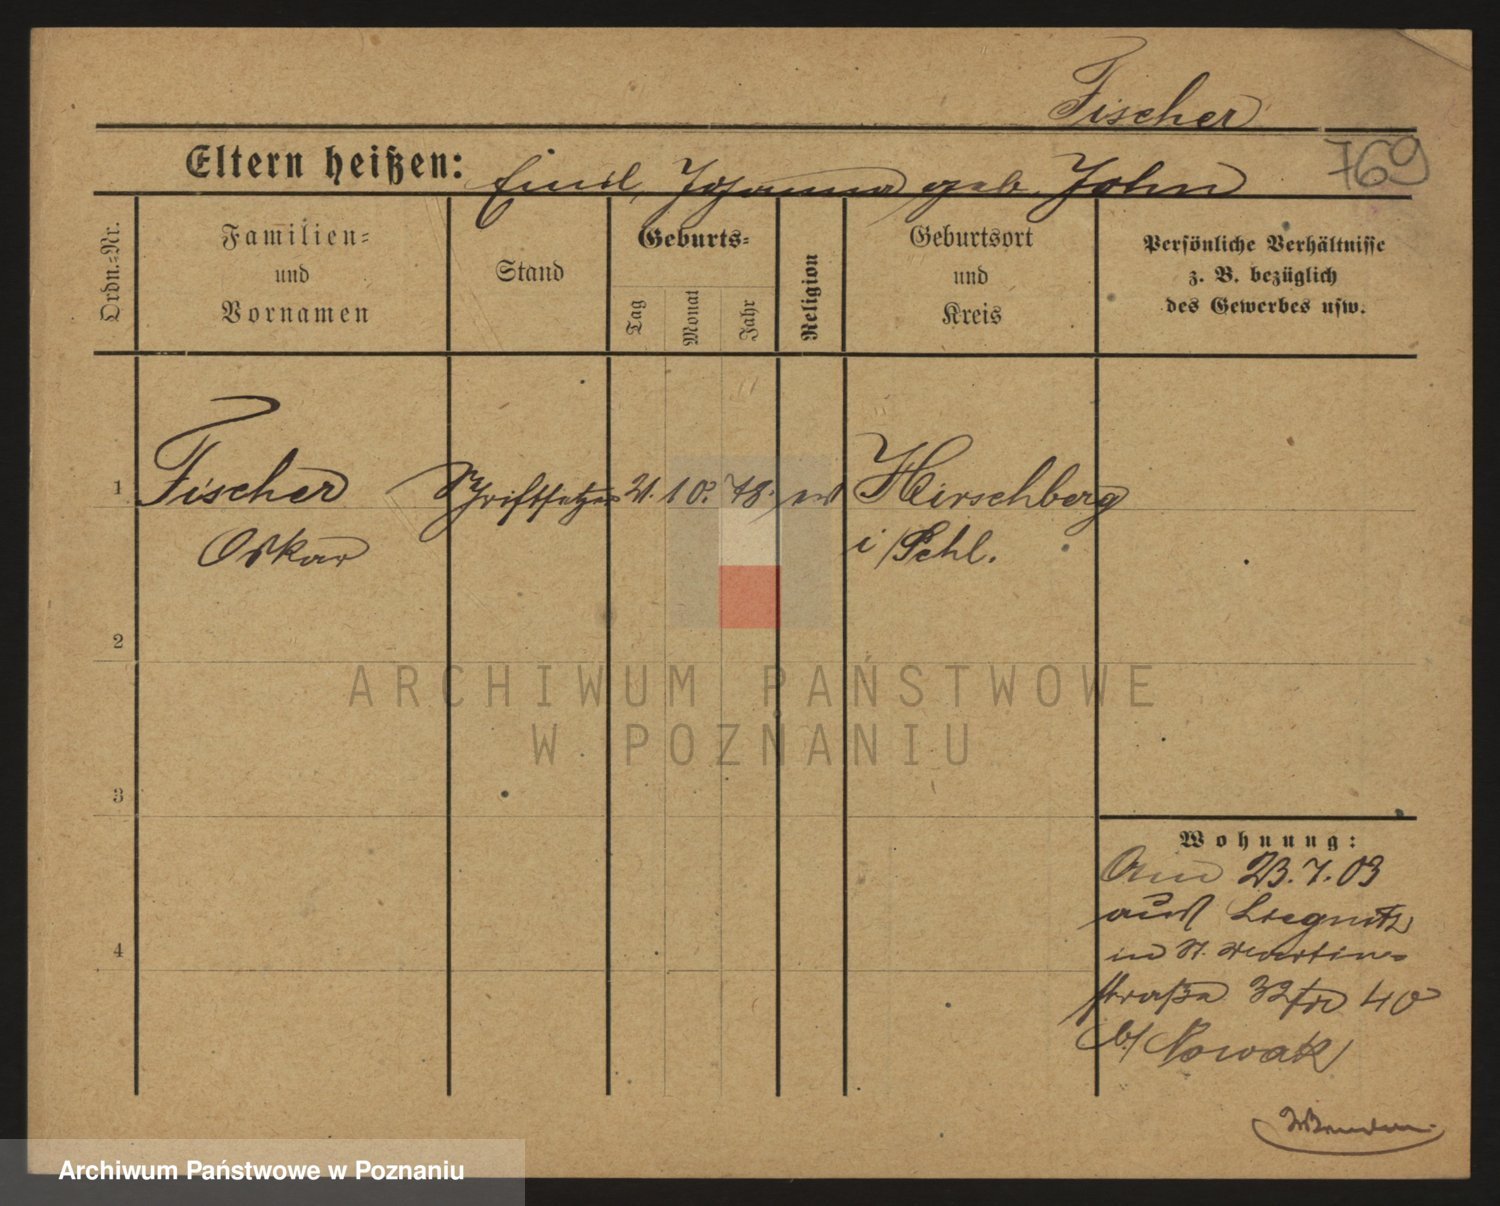 Fischer
Eltern heißen: Emil, Johanna geb. John
769
Ordn.-Nr.
Familien-
und
Vornamen
Stand
Geburts-
Tag
Monat
Jahr
Religion
Geburtsort
und
Kreis
Persönliche Verhältnisse
z. B. bezüglich
des Gewerbes usw.
1 Fischer Schriftsetzer 21. 10. 78. ev Hirschberg
Oskar i/Schl.
2
ARCHIWUM PAŃSTWOWE
W POZNANIU
3
Wohnung:
Am 23.7.03
aus Liegnitz
in St. Martin-
straße 32 40
b/ Nowak
4
Archiwum Państwowe w Poznaniu